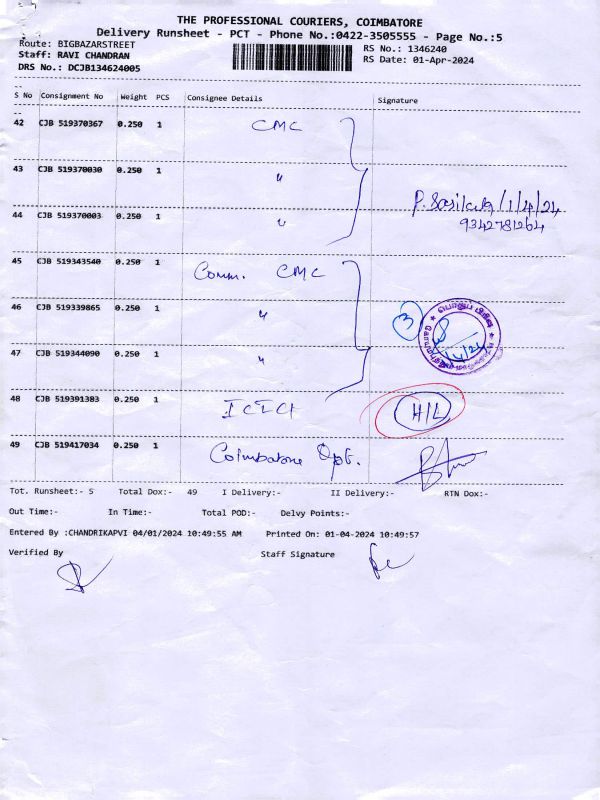 THE PROFESSIONAL COURIERS, COIMBATORE
Delivery Runsheet - PCT - Phone No.:0422-3505555 - Page No.:5
Route: BIGBAZARSTREET
RS No.: 1346240
Staff: RAVI CHANDRAN
RS Date: 01-Apr-2024
DRS No.: DCJB134624005
S No Consignment No Weight PCS Consignee Details Signature
42 CJB 519370367 0.250 1 CMC
43 CJB 519370030 0.250 1 "
P. Sasikala /1/4/24
44 CJB 519370003 0.250 1 "
9342781264
45 CJB 519343540 0.250 1 Comm. CMC
46 CJB 519339865 0.250 1 " 3
47 CJB 519344090 0.250 1 "
48 CJB 519391383 0.250 1 ICICI H/L
49 CJB 519417034 0.250 1 Coimbatore Opt.
Tot. Runsheet:- 5 Total Dox:- 49 I Delivery:- II Delivery:- RTN Dox:-
Out Time:- In Time:- Total POD:- Delvy Points:-
Entered By :CHANDRIKAPVI 04/01/2024 10:49:55 AM Printed On: 01-04-2024 10:49:57
Verified By Staff Signature